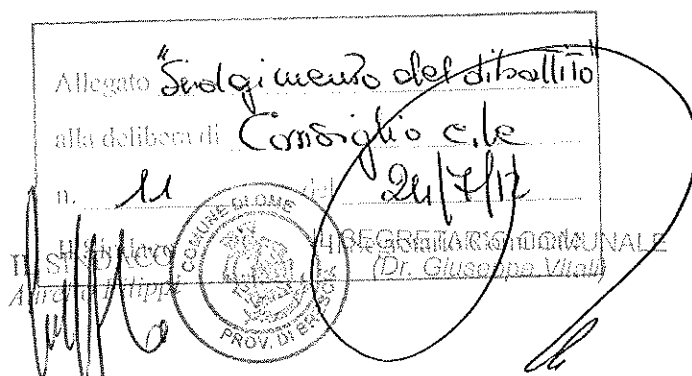 Allegato "Svolgimento del dibattito"
alla delibera di Consiglio c.le
n. 11 del 24/7/12
IL SINDACO
IL SEGRETARIO COMUNALE
(Dr. Giuseppe Vitali)
COMUNE DI OME
PROV. DI BRESCIA